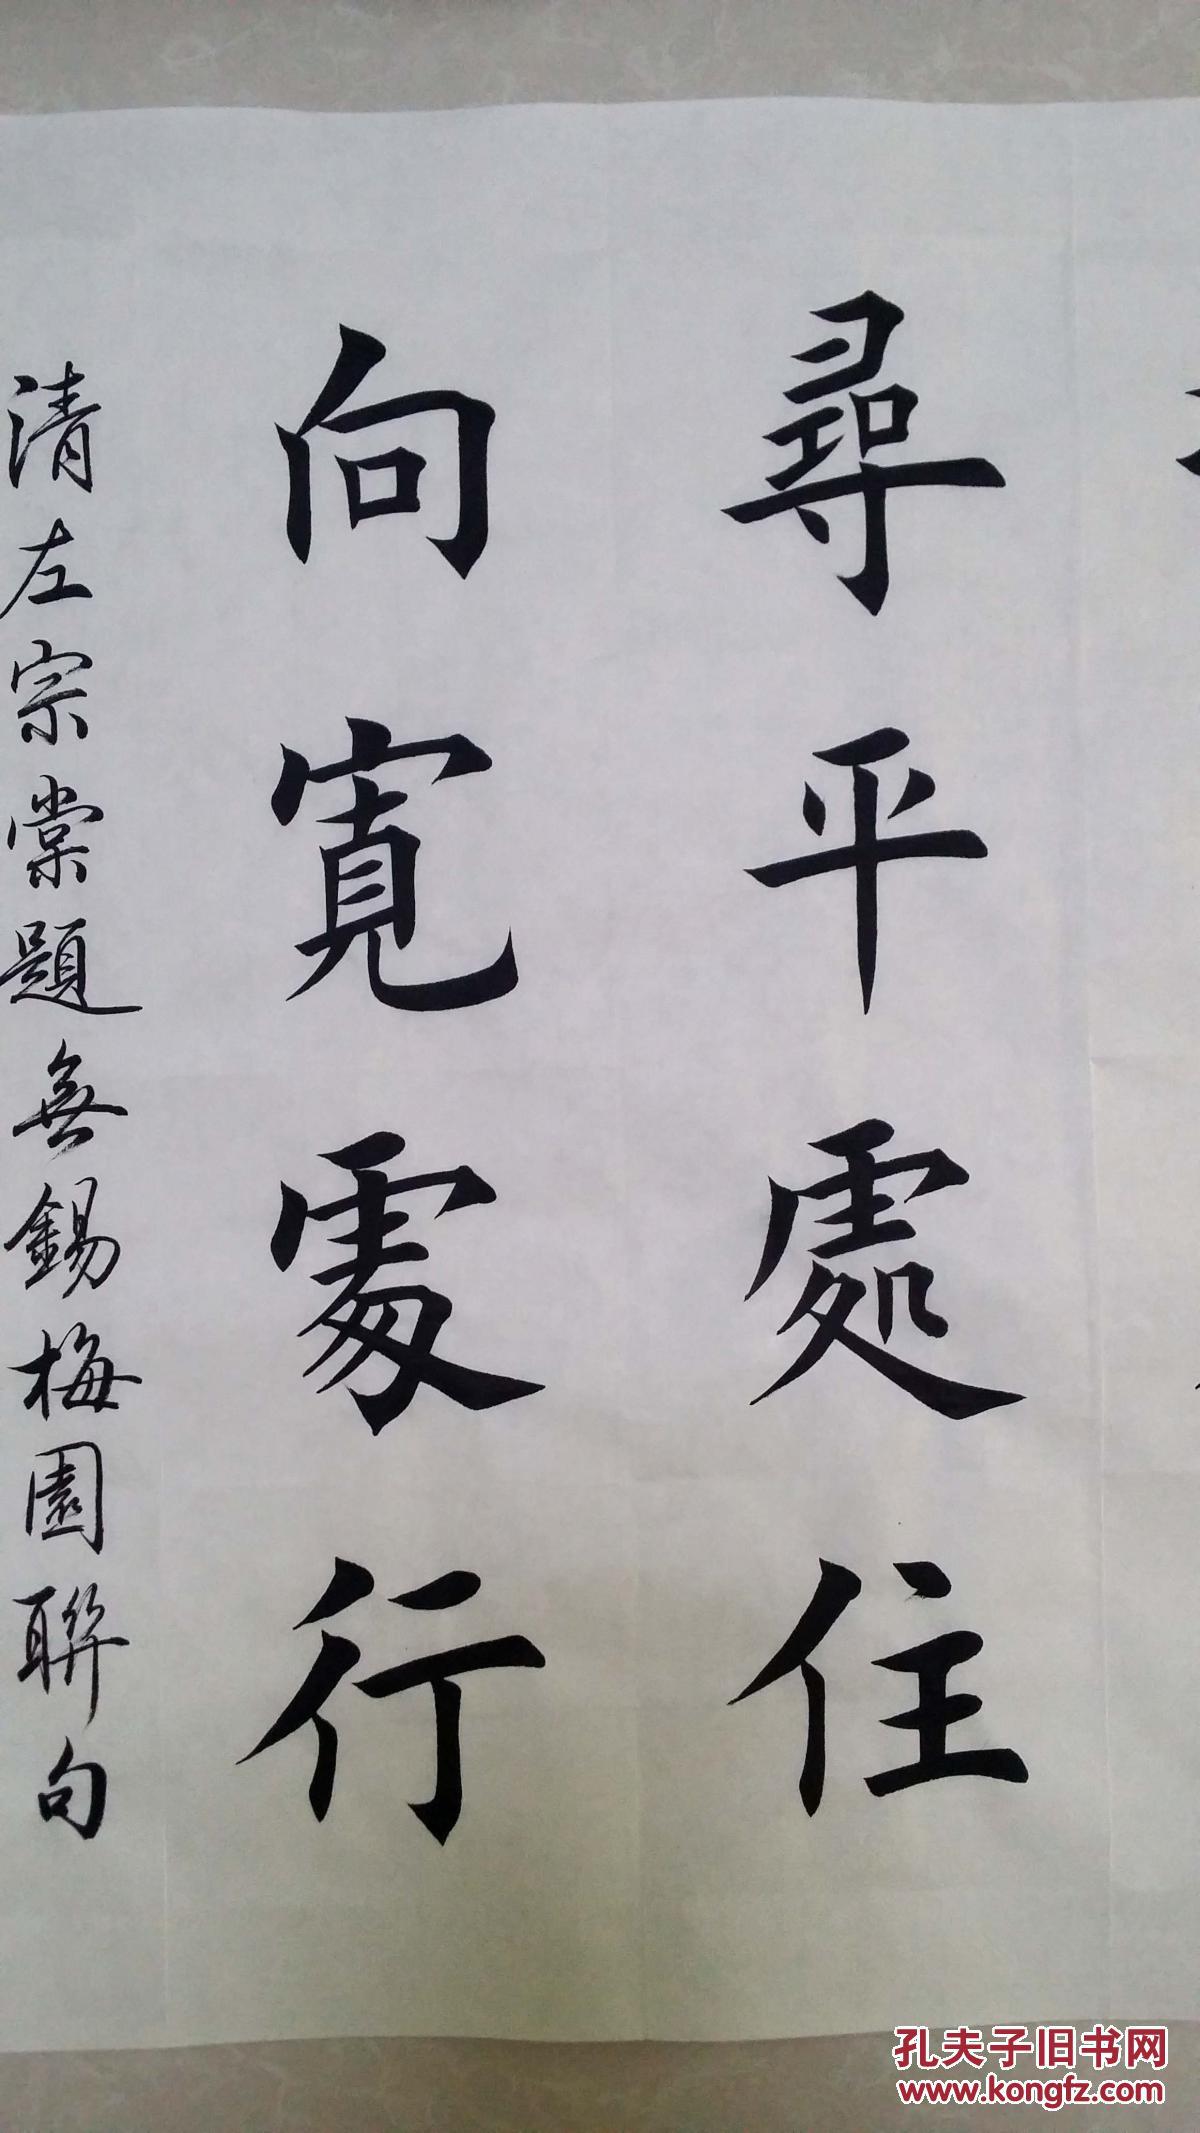 尋平處住
向寬處行
清左宗棠題無錫梅園聯句
孔夫子旧书网
www.kongfz.com